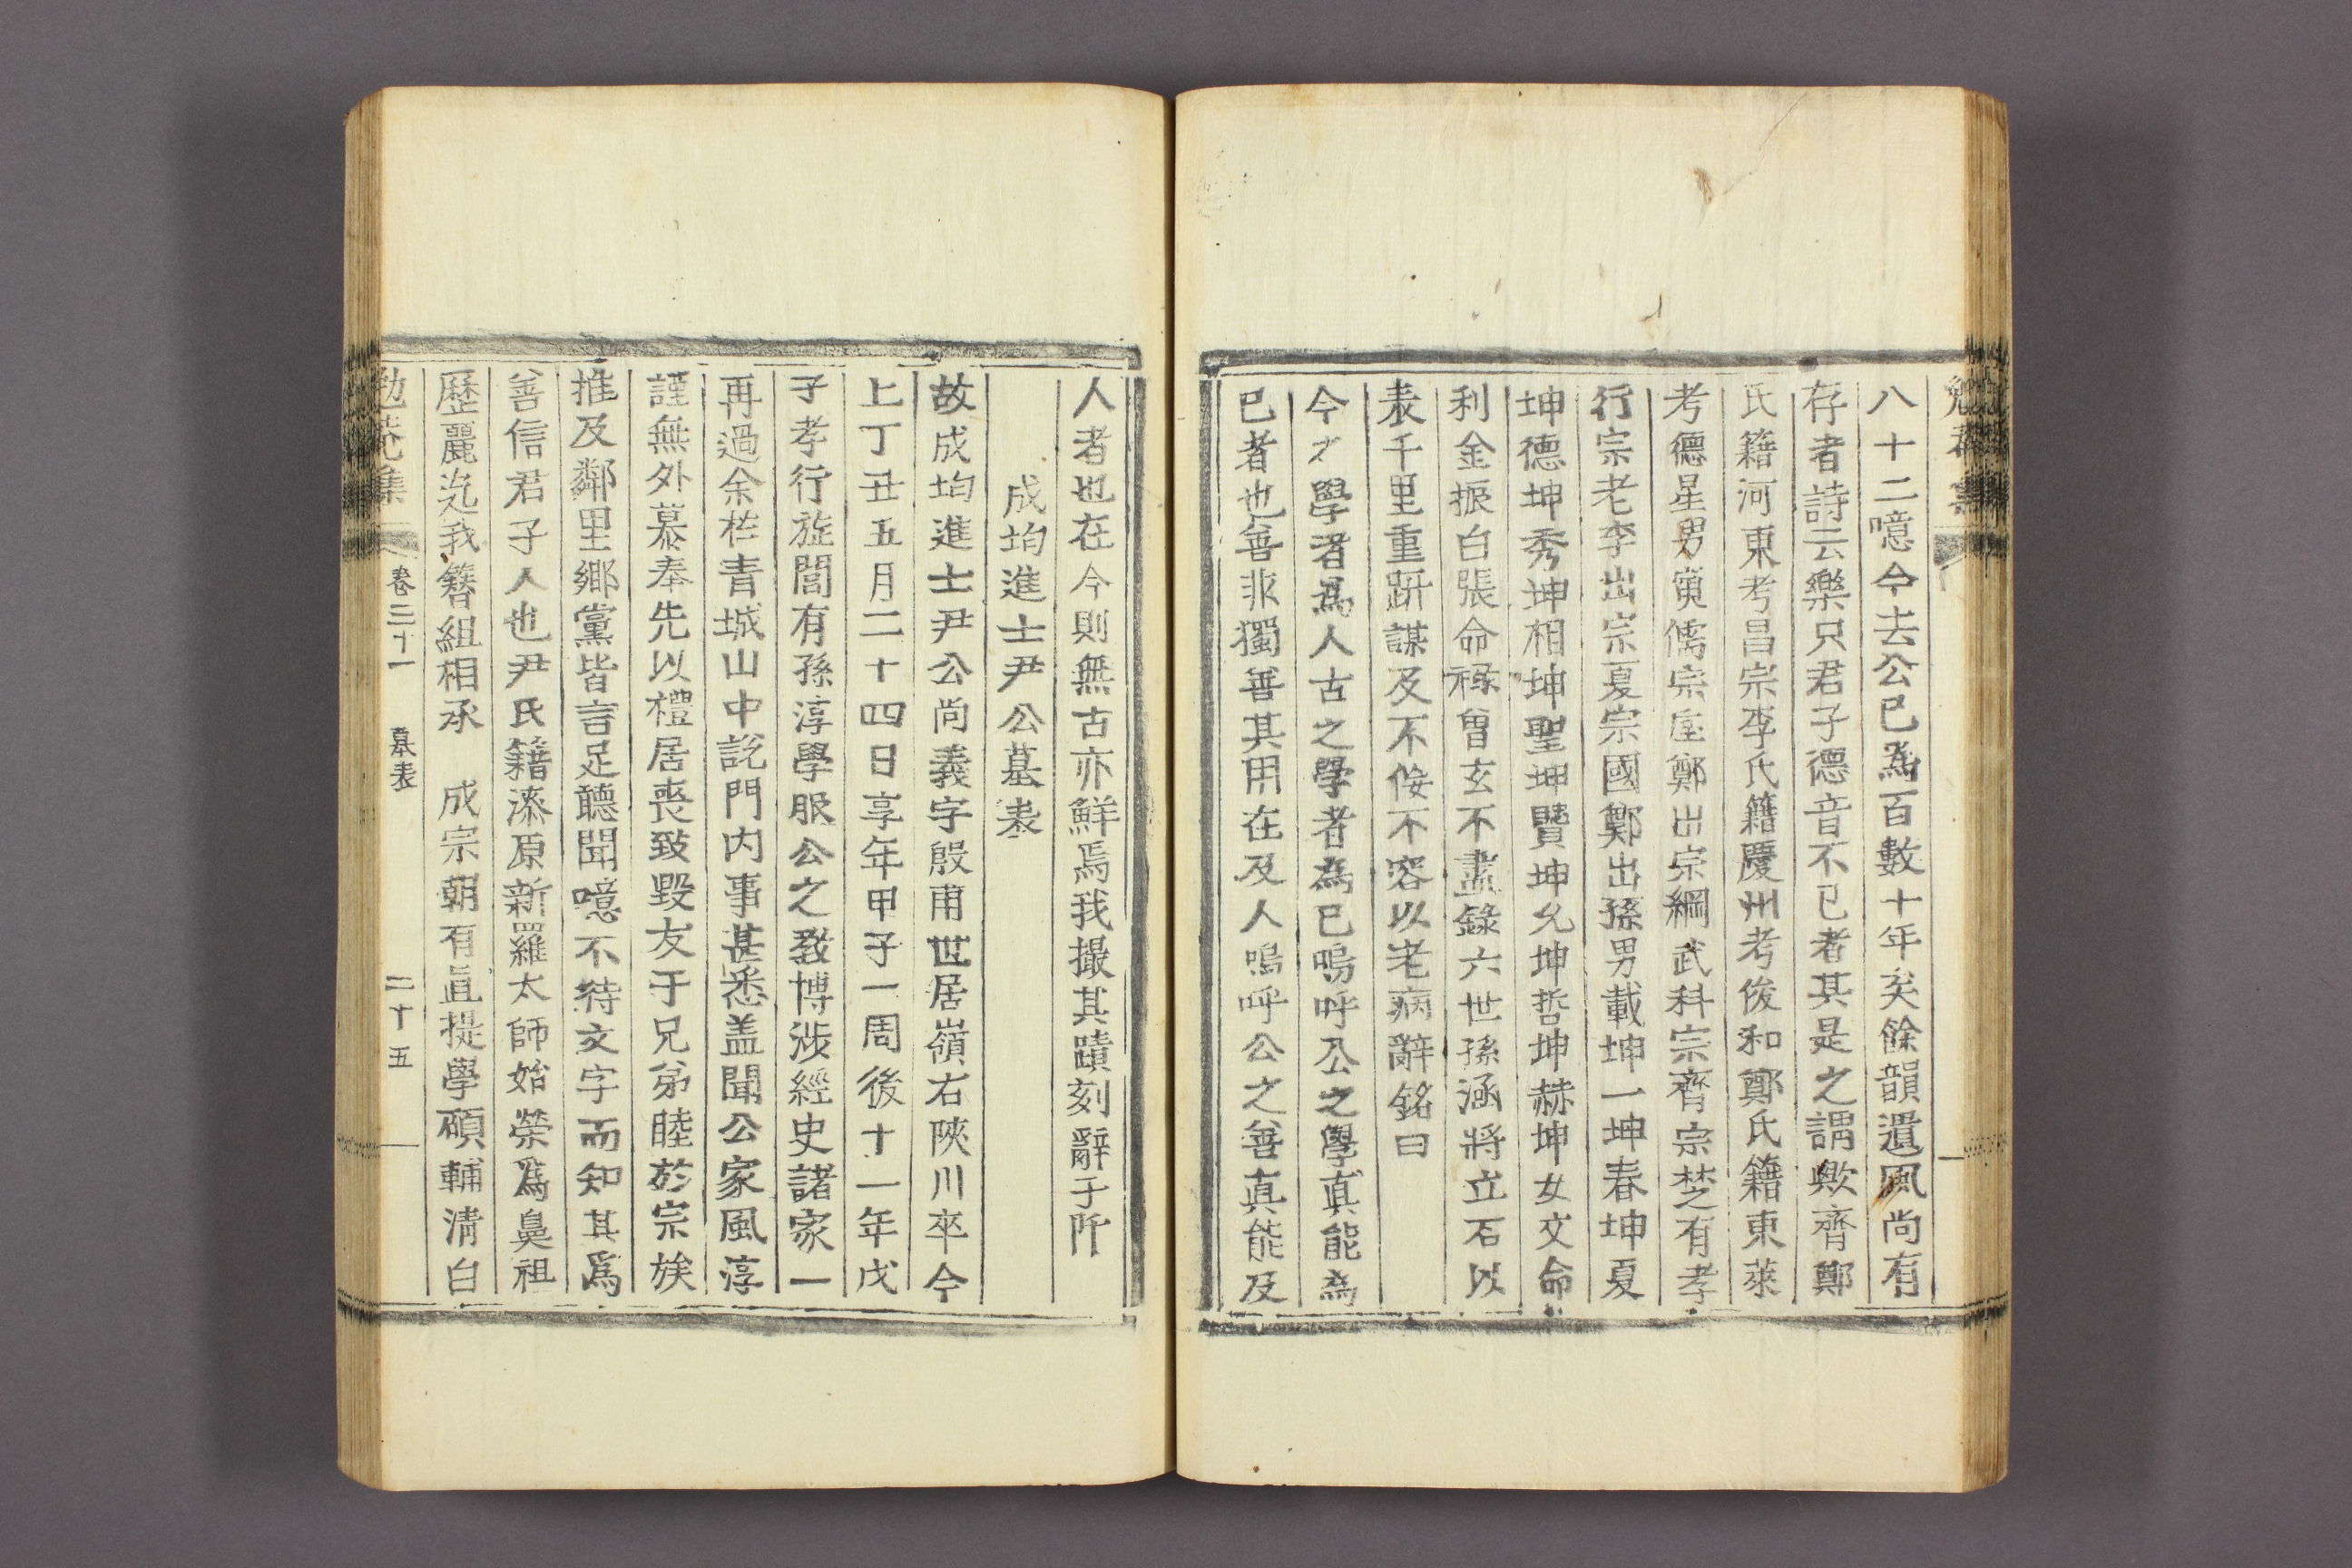 八十二噫今去公已爲百數十年矣餘韻遺風尚有
存者詩云樂只君子德音不已者其是之謂歟齊鄭
氏籍河東考昌宗李氏籍慶州考俊和鄭氏籍東萊
考德星男寅儒宗垕鄭出宗綱武科宗齊宗楚有孝
行宗老李出宗夏宗國鄭出孫男載坤一坤春坤夏
坤德坤秀坤相坤聖坤贒坤允坤哲坤赫坤女文命
利金振白張命祿曾玄不盡錄六世孫涵將立石以
表千里重趼謀及不佞不容以老病辭銘曰
今之學者爲人古之學者爲已嗚呼公之學眞能爲
已者也善非獨善其用在及人嗚呼公之善眞能及
人者也在今則無古亦鮮焉我撮其蹟刻辭于阡
成均進士尹公墓表
故成均進士尹公尚義字殷甫世居嶺右陜川卒今
上丁丑五月二十四日享年甲子一周後十一年戊
子孝行旋閭有孫淳學服公之敎博涉經史諸家一
再過余於青城山中說門內事甚悉盖聞公家風淳
謹無外慕奉先以禮居喪致毀友于兄弟睦於宗族
推及鄰里鄕黨皆言足聽聞噫不待文字而知其爲
善信君子人也尹氏籍漆原新羅太師始榮爲鼻祖
歷麗迄我簪組相承 成宗朝有直提學碩輔淸白
勉菴集 卷三十一 墓表 二十五